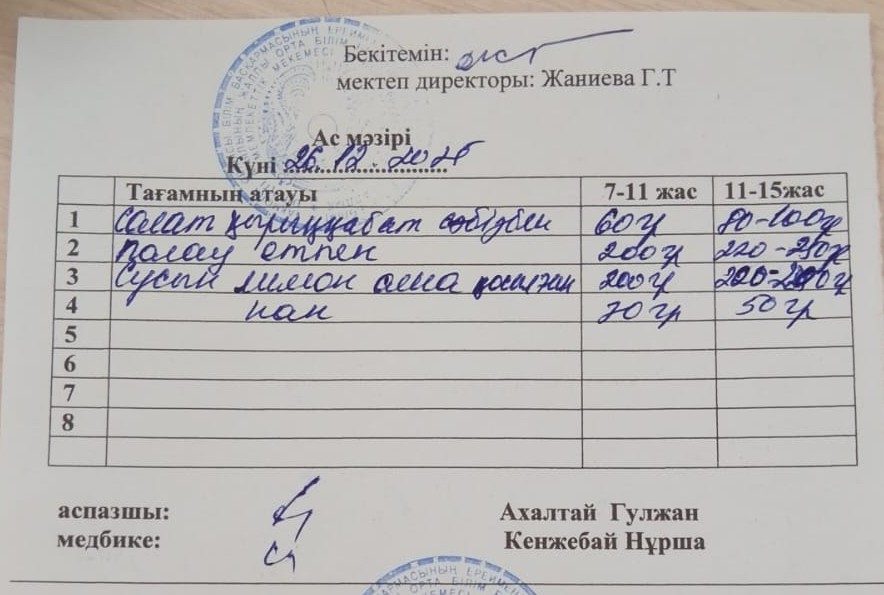 Бекітемін:
мектеп директоры: Жаниева Г.Т
Ас мәзірі
Күні 26.12.2025
Тағамның атауы 7-11 жас 11-15жас
1 Салат қырыққабат сәбізбен 60гр 80-100гр
2 палау етпен 200гр 220-250гр
3 Сусын лимон алма қосылған 200гр
4 нан 30гр 50гр
5
6
7
8
аспазшы: Ахалтай Гулжан
медбике: Кенжебай Нұрша